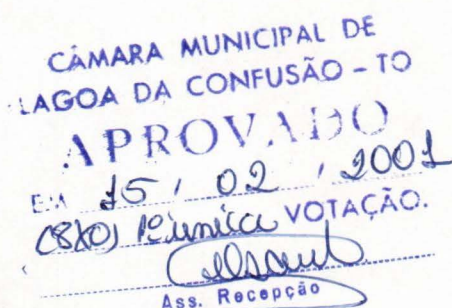 CÂMARA MUNICIPAL DE
LAGOA DA CONFUSÃO - TO
APROVADO
EM 15 / 02 / 2001
(8x0) única VOTAÇÃO.
Ass. Recepção